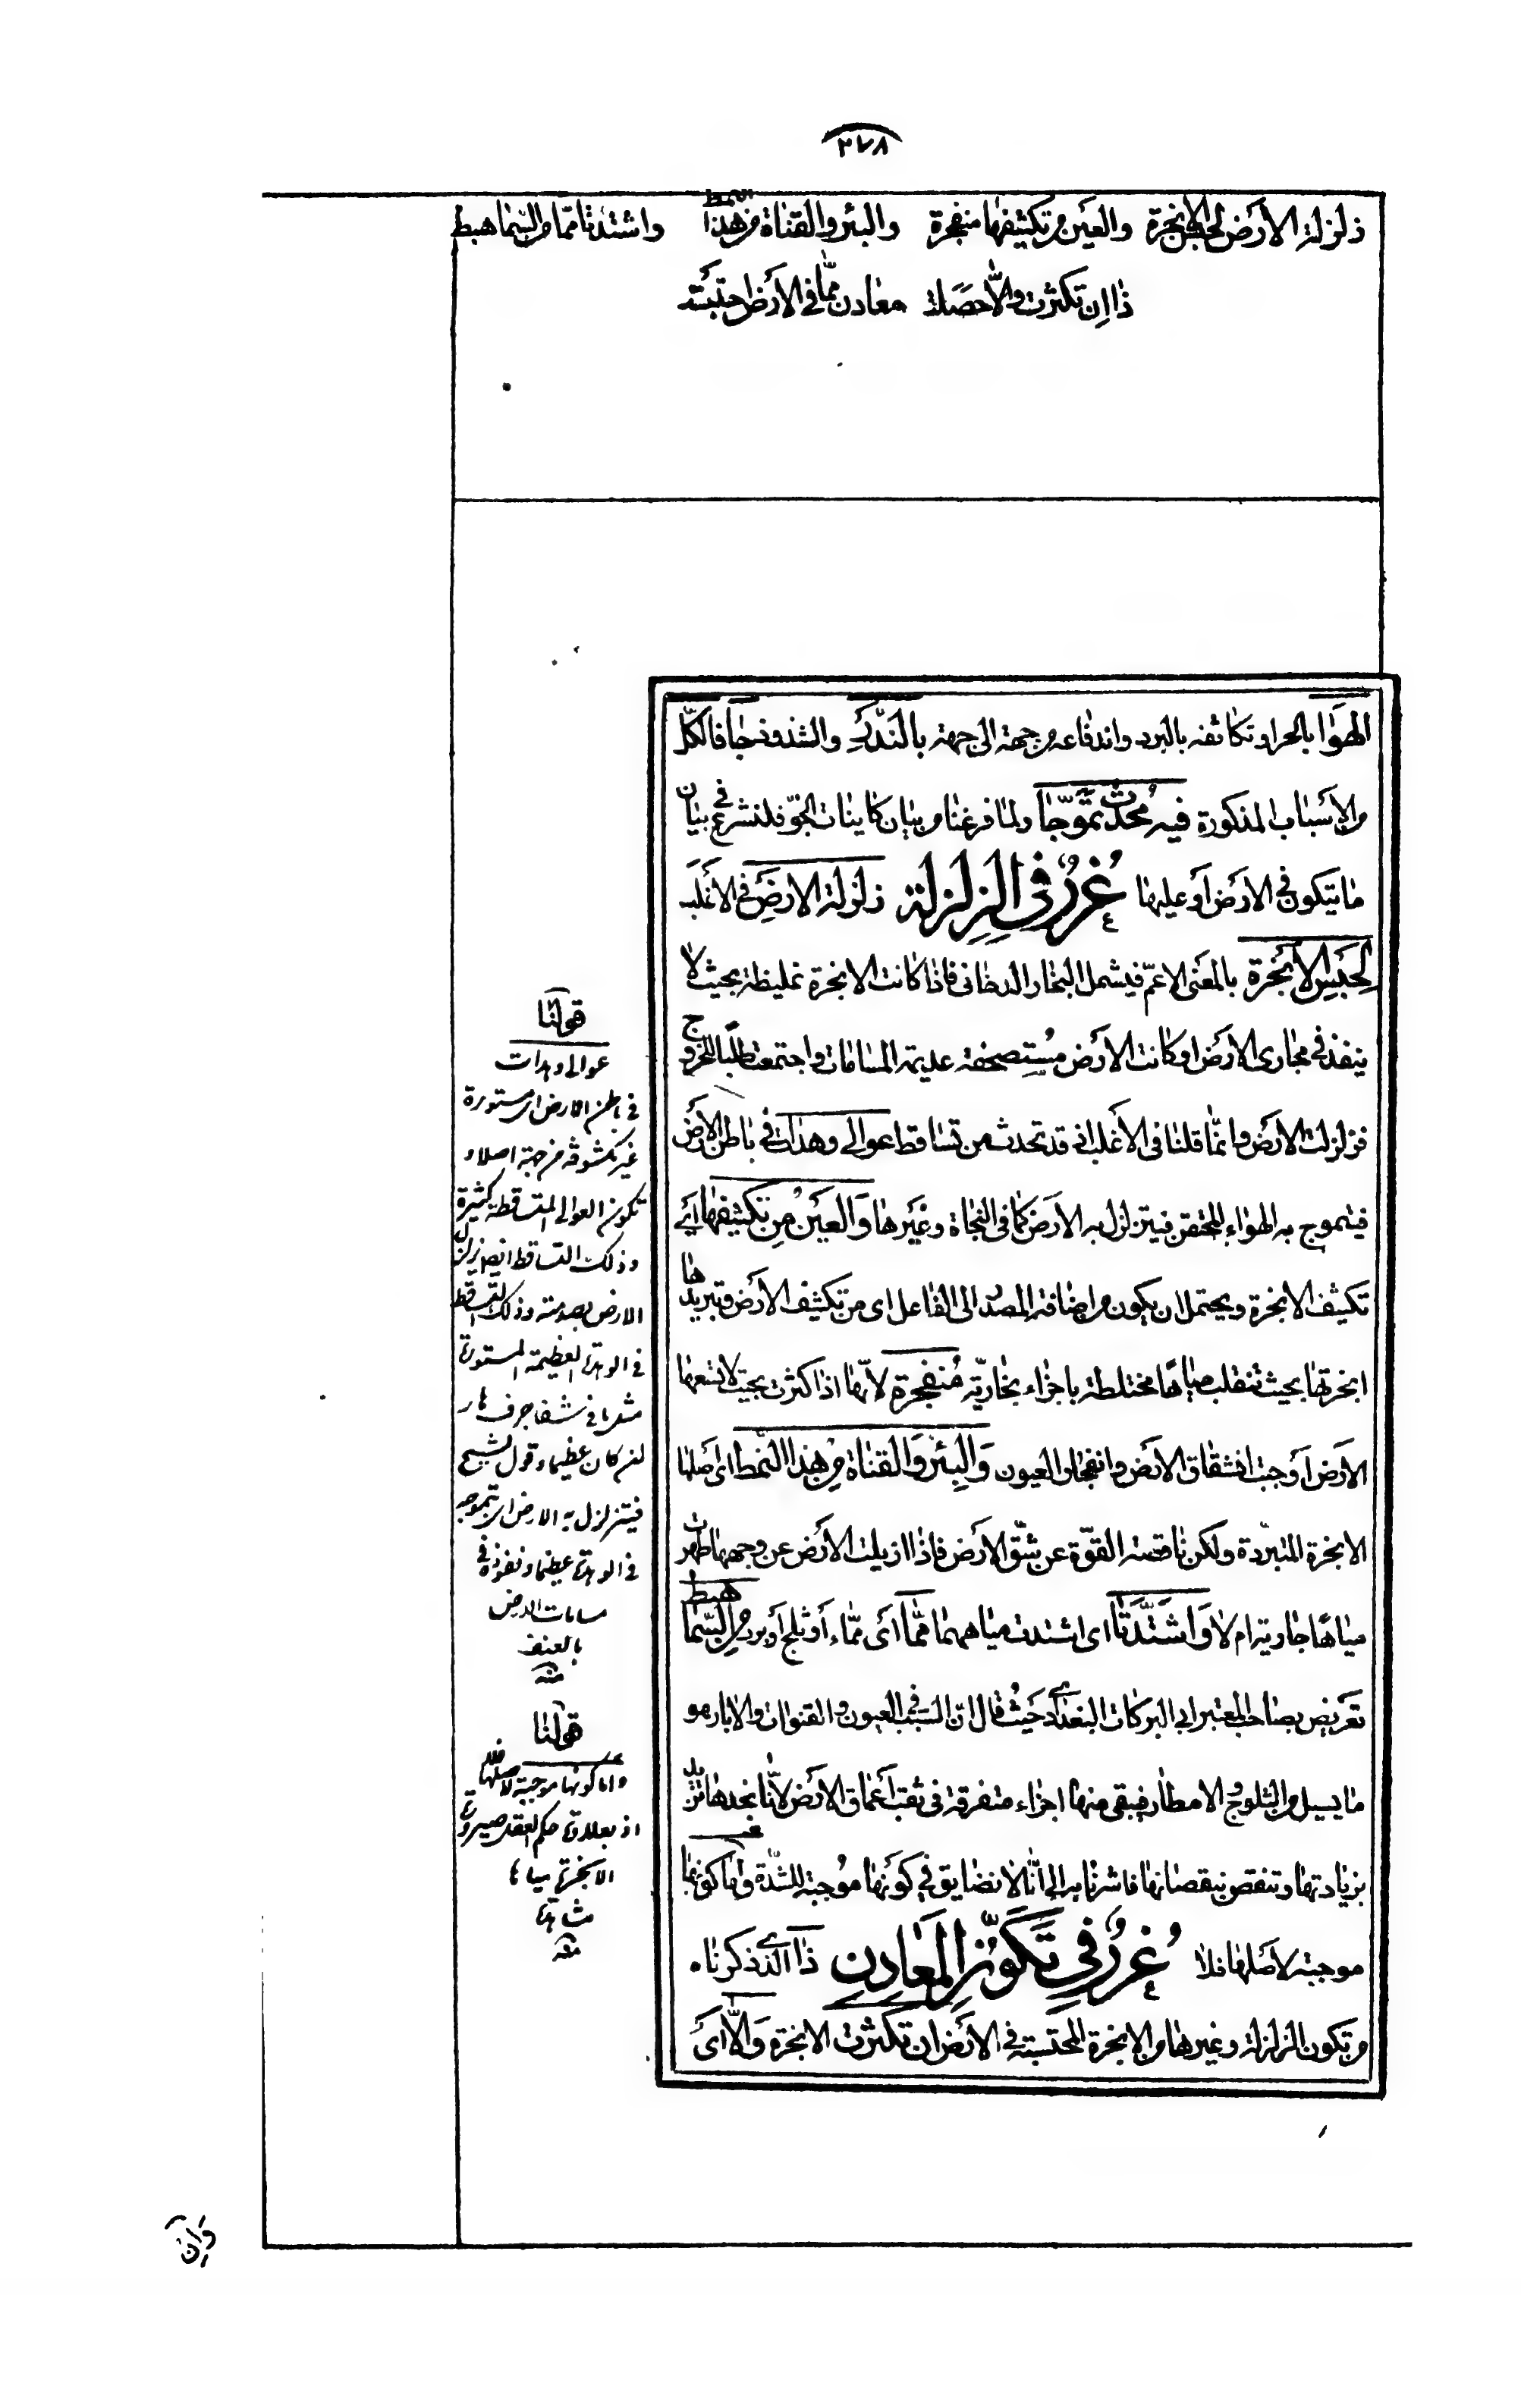 ٢٧٨
زلزلة الأرض لحبس الأبخرة والعين من تكثيفها منفجرة والبئر والقناة من هذا النمط واشتدتا مما من السما هبط
ذا إن تكثرت وإلا حصلت معادن مما في الأرض احتبست
الهوا بالحر او تكاثفه بالبرد واندفاعه من جهة الى جهة بالندرك والشذوذ جا فالكل
من الأسباب المذكورة فيه محدث تموجا ولما فرغنا من بيان كاينات الجو فلنشرع في بيان
ما يتكون في الارض أو عليها غرر في الزلزلة زلزلة الارض في الأغلب
لحبس الأبخرة بالمعنى الاعم فيشمل البخار الدخانى فاذا كانت الابخرة غليظة بحيث لا
ينفذ في مجارى الارض او كانت الارض مستصحفة عديمة المسامات واجتمعت طلبا للخروج
فزلزلت الارض وانما قلنا فى الأغلب انه قد تحدث من تساقط عوالي وهدات في باطن الارض
فيتموج به الهواء المحتقن فيتزلزل به الارض كما فى النجاة وغيرها والعين من تكثيفها أي
تكثف الابخرة ويحتمل ان يكون من اضافة المصدر الى الفاعل اى من تكثيف الارض وتبريدها
ابخرتها بحيث تنقلب مياها مختلطة باجزاء بخارية منفجرة لانها اذا كثرت بحيث لا تسعها
الارض أوجبت انشقاق الارض وانفجار العيون والبئر والقناة من هذا النمط اى أصلها
الابخرة المتبردة ولكن ناقصة القوة عن شق الارض فاذا ازيلت الارض عن وجهها ظهرت
مياها جارية ام لا واشتدتا اى اشتدت مياههما مما أى مماء أو ثلج أو برد من السما هبط
تعريض بصاحب المعتبر ابى البركات البغدادي حيث قال ان السبب في العيون والقنوات والابار هو
ما يسيل من الثلوج والامطار فيبقى منها اجزاء متفرقة في ثقب أعماق الارض لانا نجدها تزيد
بزيادتها وتنقص بنقصانها فاشرنا به الى انا لا نضايق في كونها موجبة للشدة واما كونها
موجبة لاصلها فلا غرر في تكون المعادن ذا الذي ذكرناه
من تكون الزلزلة وغيرها من الابخرة المحتسبة في الارض ان تكثرت الابخرة وإلا أى
قولنا
عوالى وهدات
فى باطن الارض اى مستورة
غير مكشوفة من جهة اصلا و
تكون العوالى المتساقطة كثيرة
وذلك التساقط ايضا يزلزل
الارض بصدمته وذلك التساقط
فى الوهدة العظيمة المستورة
مثل ما فى شفا جرف هار
لمن كان عظيما وقول الشيخ
فيتزلزل به الارض اى بتموجه
فى الوهدة عظيما ونفوذه فى
مسامات الارض
بالعنف
منه
قولنا
واما كونها موجبة لاصلها فلا
اذ بعلاقة حكم العقل صيرورة
الابخرة مياها
مشاهدة
منه
وان